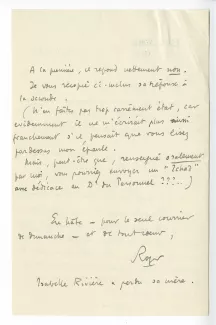 A la première, il répond nettement non.
Je vous recopie ci-inclus sa réponse à
la seconde.
(N'en faites pas trop carrément état, car
évidemment il ne m'écrirait plus aussi
franchement s'il pensait que vous lisez
par dessus mon épaule.
Mais, peut-être que, renseigné oralement
par moi, vous pourriez envoyer un "Echos"
avec dédicace au Dr du Personnel ???...)
En hâte – pour le seul courrier
de dimanche – et de tout cœur,
Roger
Isabelle Rivière a perdu sa mère.